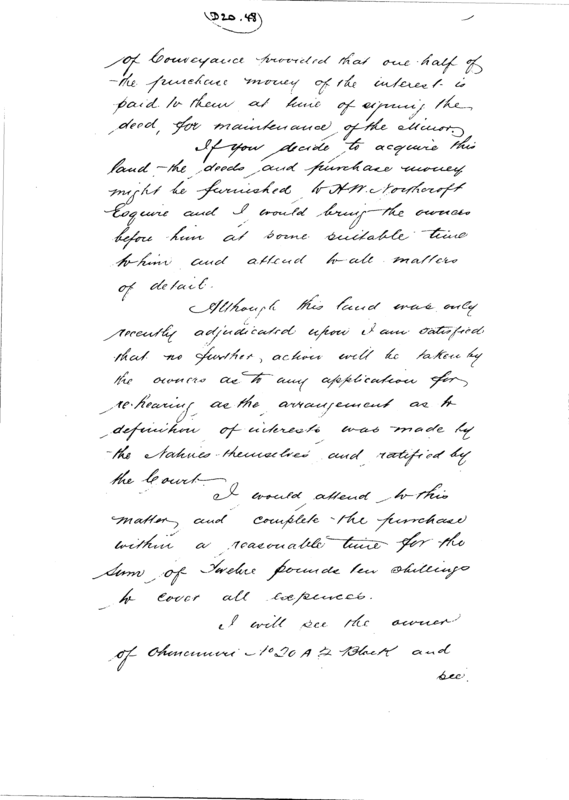 D20.48
of Conveyance provided that one half of
the purchase money of the interest is
paid to them at time of signing the
deed, for maintenance of the Minor,
If you decide to acquire this
land the deeds and purchase money
might be furnished to H.W. Northcroft
Esquire and I would bring the owners
before him at some suitable time
to him and attend to all matters
of detail.
Although this land was only
recently adjudicated upon I am satisfied
that no further action will be taken by
the owners as to any application for
re-hearing as the arrangement as to
definition of interests was made by
the Natives themselves and ratified by
the Court.
I would attend to this
matter, and complete the purchase
within a reasonable time for the
sum of Twelve pounds ten shillings
to cover all expences.
I will see the owner
of Ohinemuri No 20 A 2 Block and
see.